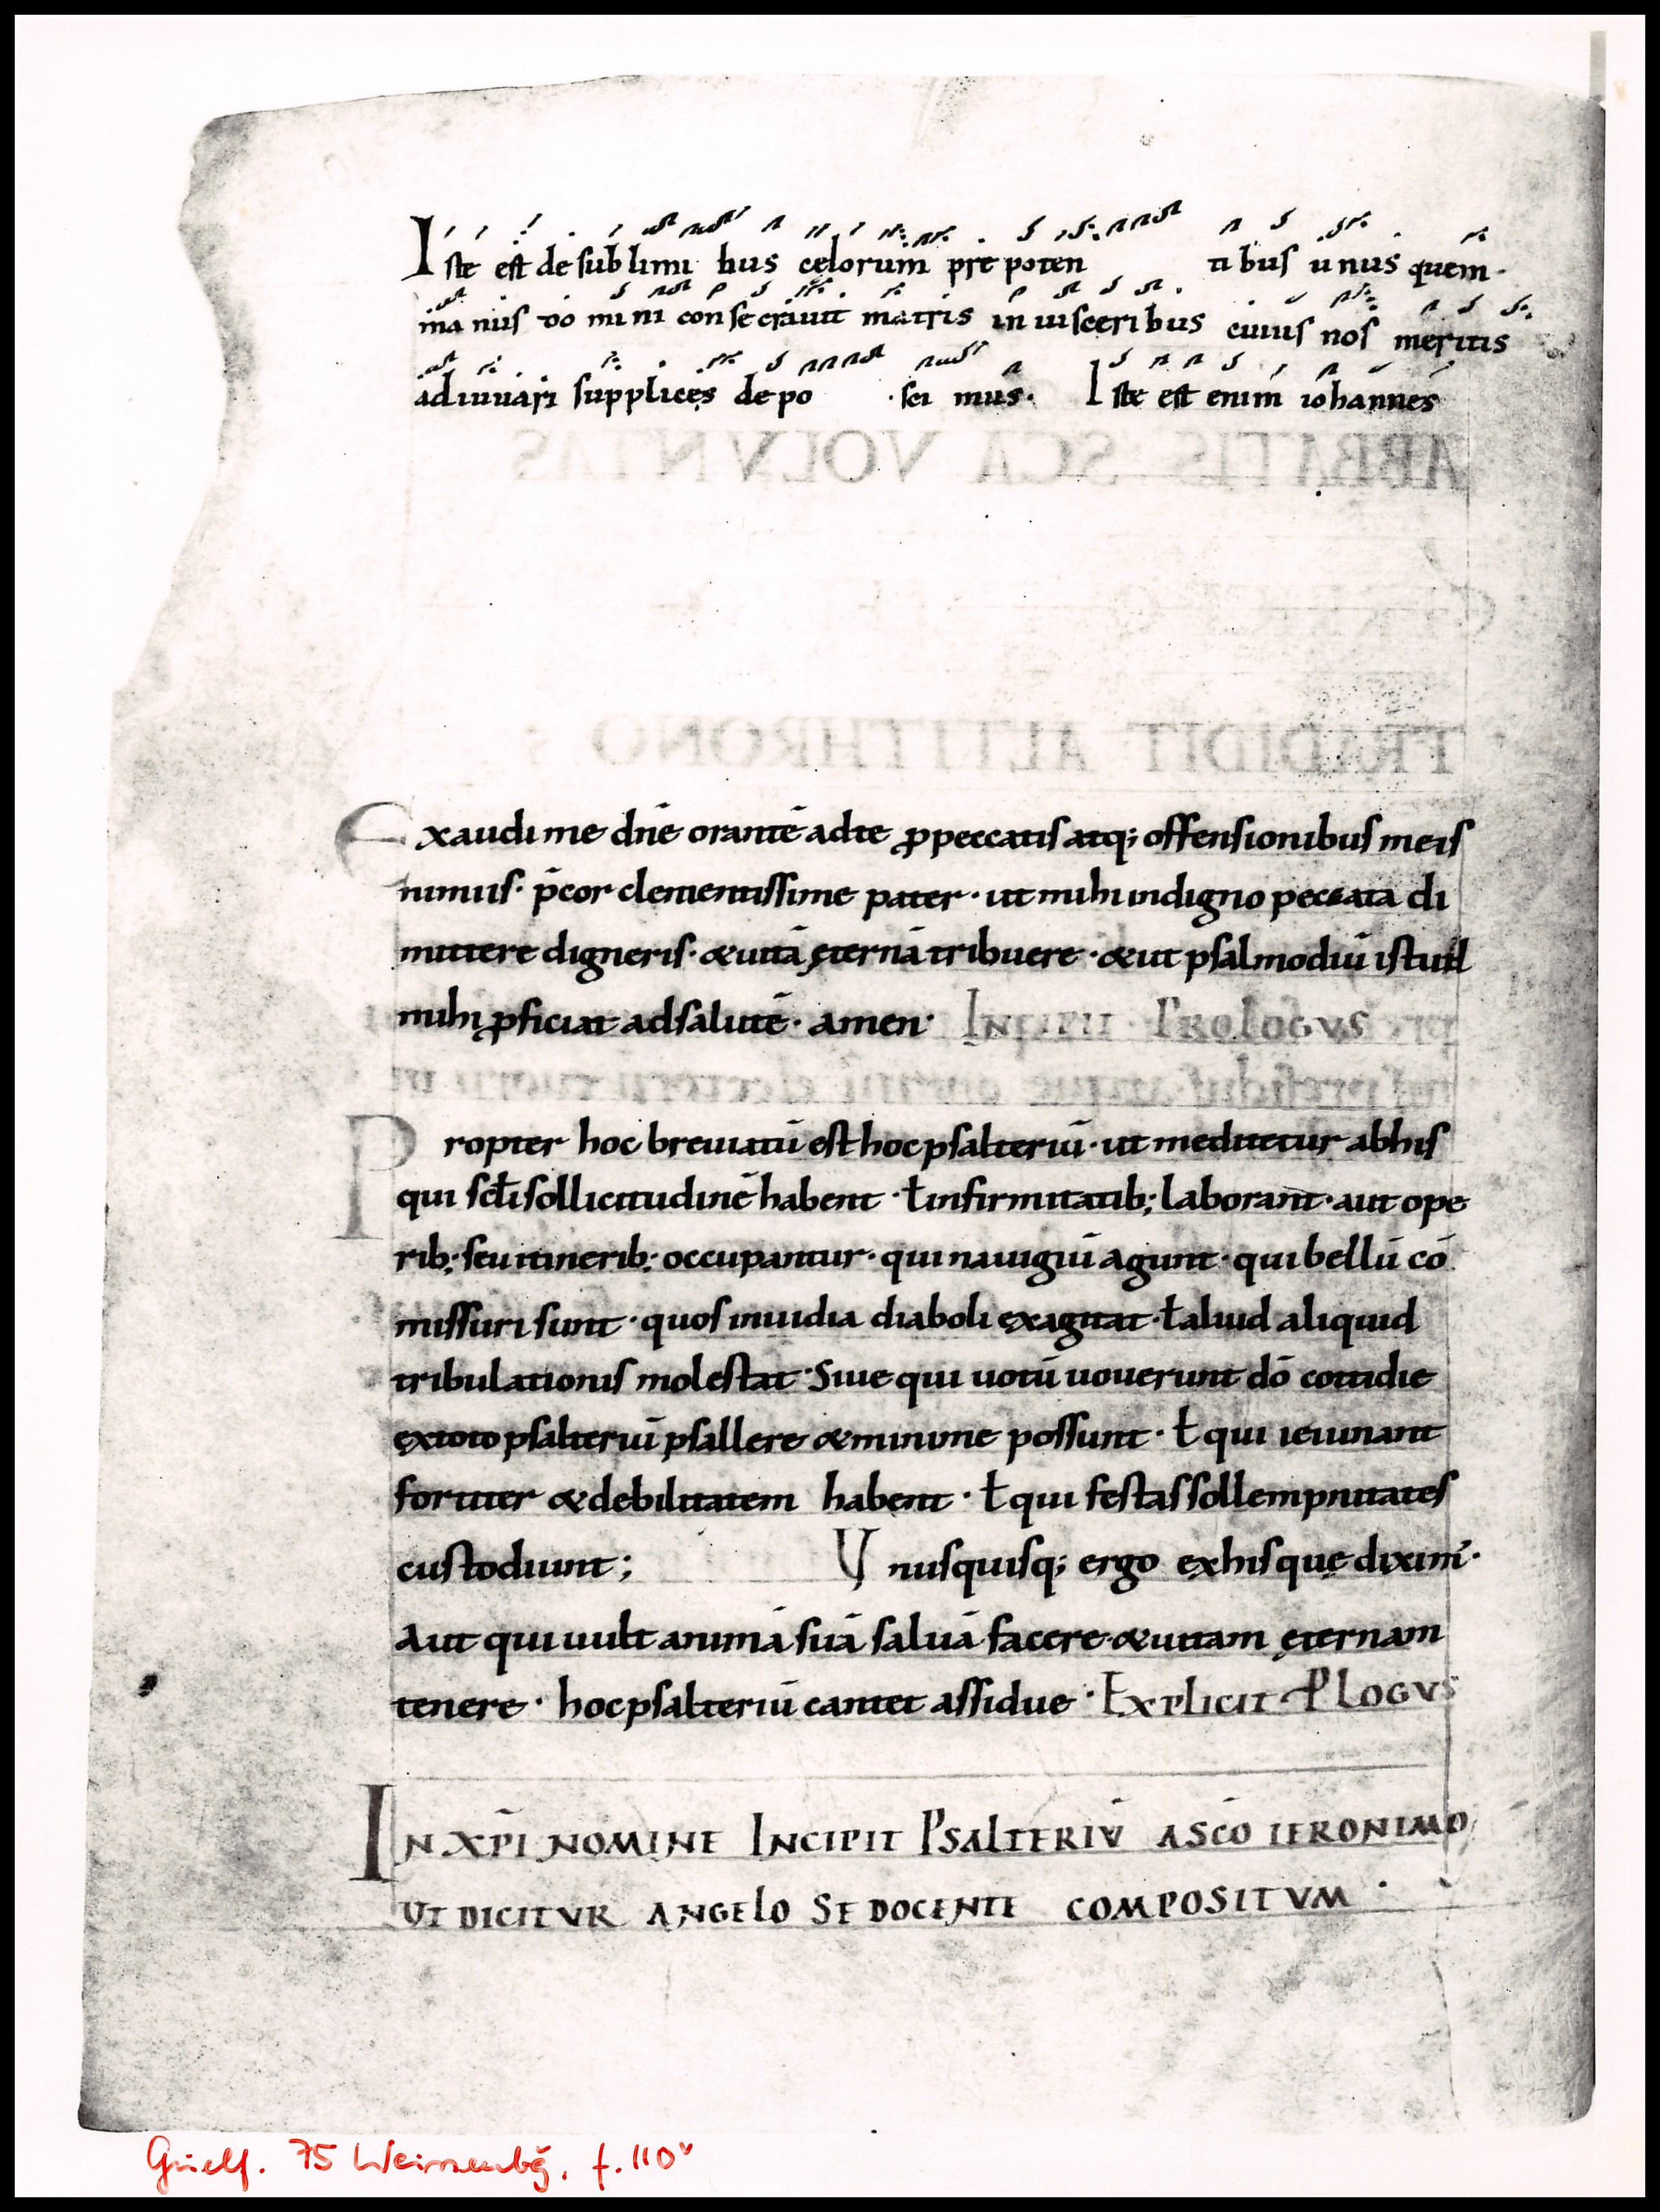 Iste est de sublimi bus cęlorum pre poten tibus unus quem·
ma nus do mini consecrauit matris in uisceribus cuius nos meritis
adiuuari supplices depo · sci mus· Iste est enim iohannes
ABBATIS SCA VOLVNTAS
TRADIDIT ALTITHRONO ;
Exaudi me dn̄e orantē adte ꝓpeccatis atq; offensionibus meis
nimiis· p̄cor clementissime pater· ut mihi indigno peccata di
mittere digneris· &uitā ęternā tribuere· &ut psalmodiū istud
mihi ꝓficiat adsalutē· amen· Incipit Prologus
Propter hoc breuiatū est hoc psalteriū· ut meditetur abhis
qui sc̄li sollicitudinē habent· ł infirmitatib; laborant· aut ope
rib; seu itinerib; occupantur· qui nauigiū agunt· qui bellū cō
missuri sunt· quos inuidia diaboli exagitat· ł aliud aliquid
tribulationis molestat· Siue qui uotū uouerunt dō cottidie
extoto psalteriū psallere &minime possunt· ł qui ieiunant
fortiter &debilitatem habent· ł qui festas sollempnitates
custodiunt; Vnusquisq; ergo exhis quę dixim̄·
Aut qui uult animā suā saluā facere· &uitam ęternam
tenere· hoc psalteriū cantet assidue· Explicit Plogvs
IN XP̄I NOMINE INCIPIT PSALTERIV̄ ASCŌ IERONIMO
VT DICITVR ANGELO SE DOCENTE COMPOSITVM·
Guelf. 75 Weissenbg. f. 110ᵛ